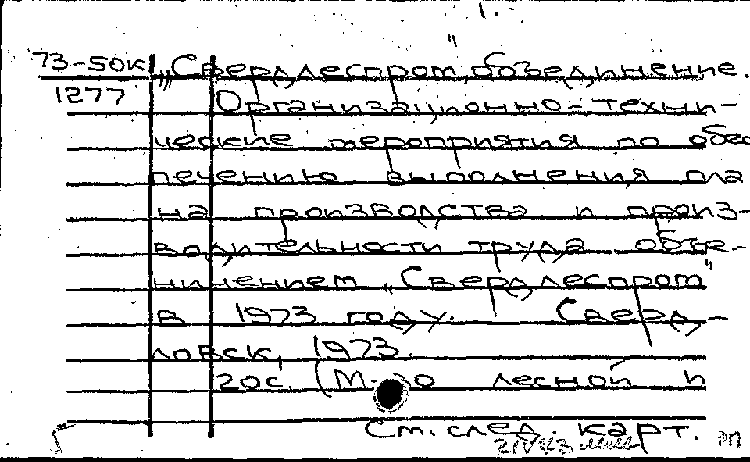 73-50к „Свердлеспром", объединение.
1277 Организационно-техни-
ческие мероприятия по обес
печению выполнения пла
на производства и произ-
водительности труда объе-
нинением „Свердлеспром"
в 1973 году. Сверд-
ловск, 1973.
20с. (М-во лесной и
См. след. карт.